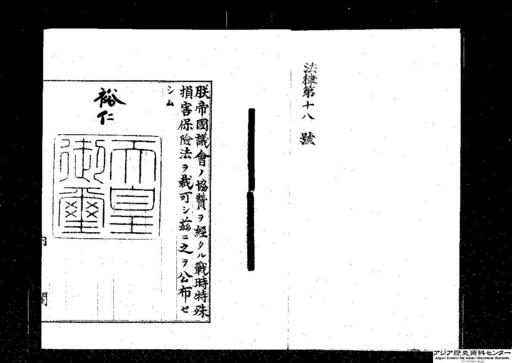 法律第十八號
朕帝國議會ノ協贊ヲ經タル戰時特殊
損害保險法ヲ裁可シ茲ニ之ヲ公布セ
シム
裕仁
天皇
御璽
内閣
アジア歴史資料センター
Japan Center for Asian Historical Records